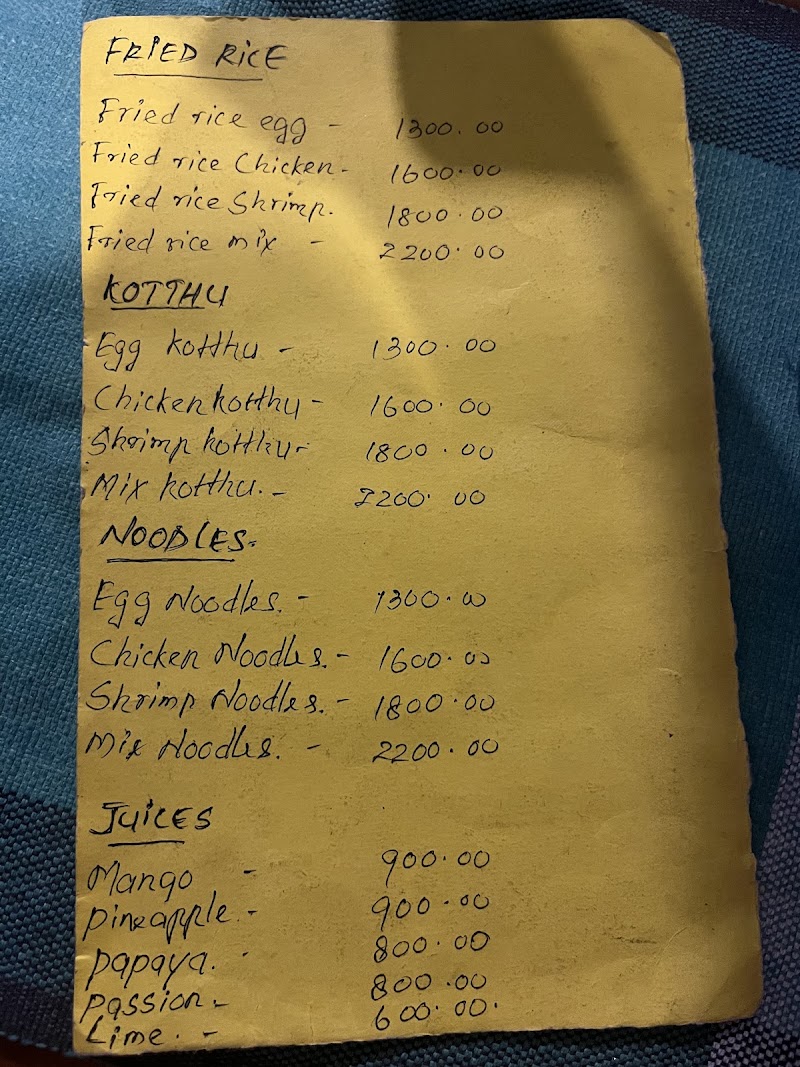 FRIED RICE
Fried rice egg - 1300.00
Fried rice Chicken - 1600.00
Fried rice Shrimp. 1800.00
Fried rice mix - 2200.00
KOTTHU
Egg kotthu - 1300.00
Chicken kotthu - 1600.00
Shrimp kotthu - 1800.00
Mix kotthu. - 2200.00
NOODLES.
Egg Noodles. - 1300.00
Chicken Noodles. - 1600.00
Shrimp Noodles. - 1800.00
Mix Noodles. - 2200.00
JUICES
Mango - 900.00
pineapple. - 900.00
papaya. - 800.00
passion. - 800.00
Lime. - 600.00.